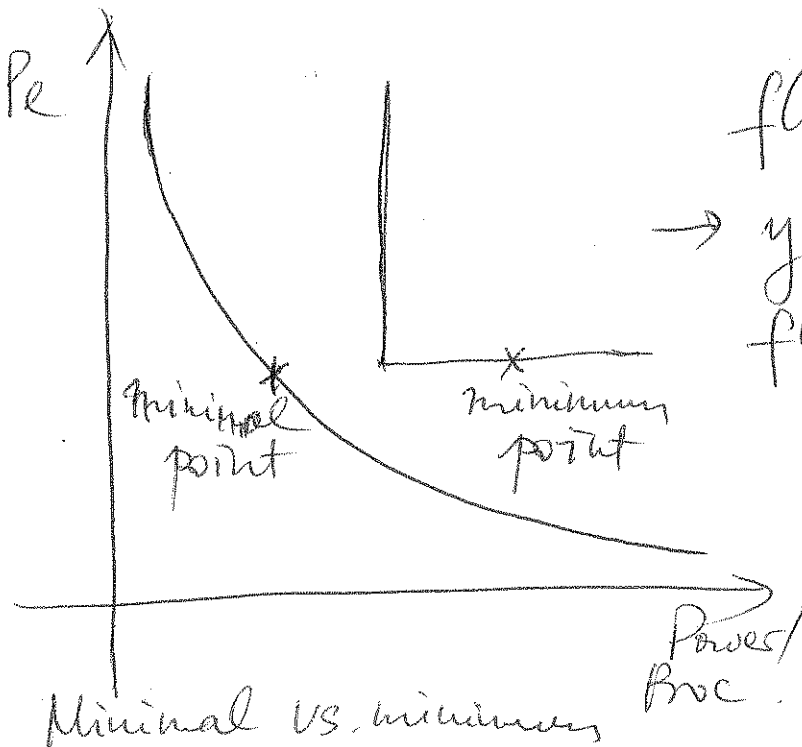 Pe
f(
→ y
f(
minimal
point
minimum
point
Power/
Proc.
Minimal vs. minimum